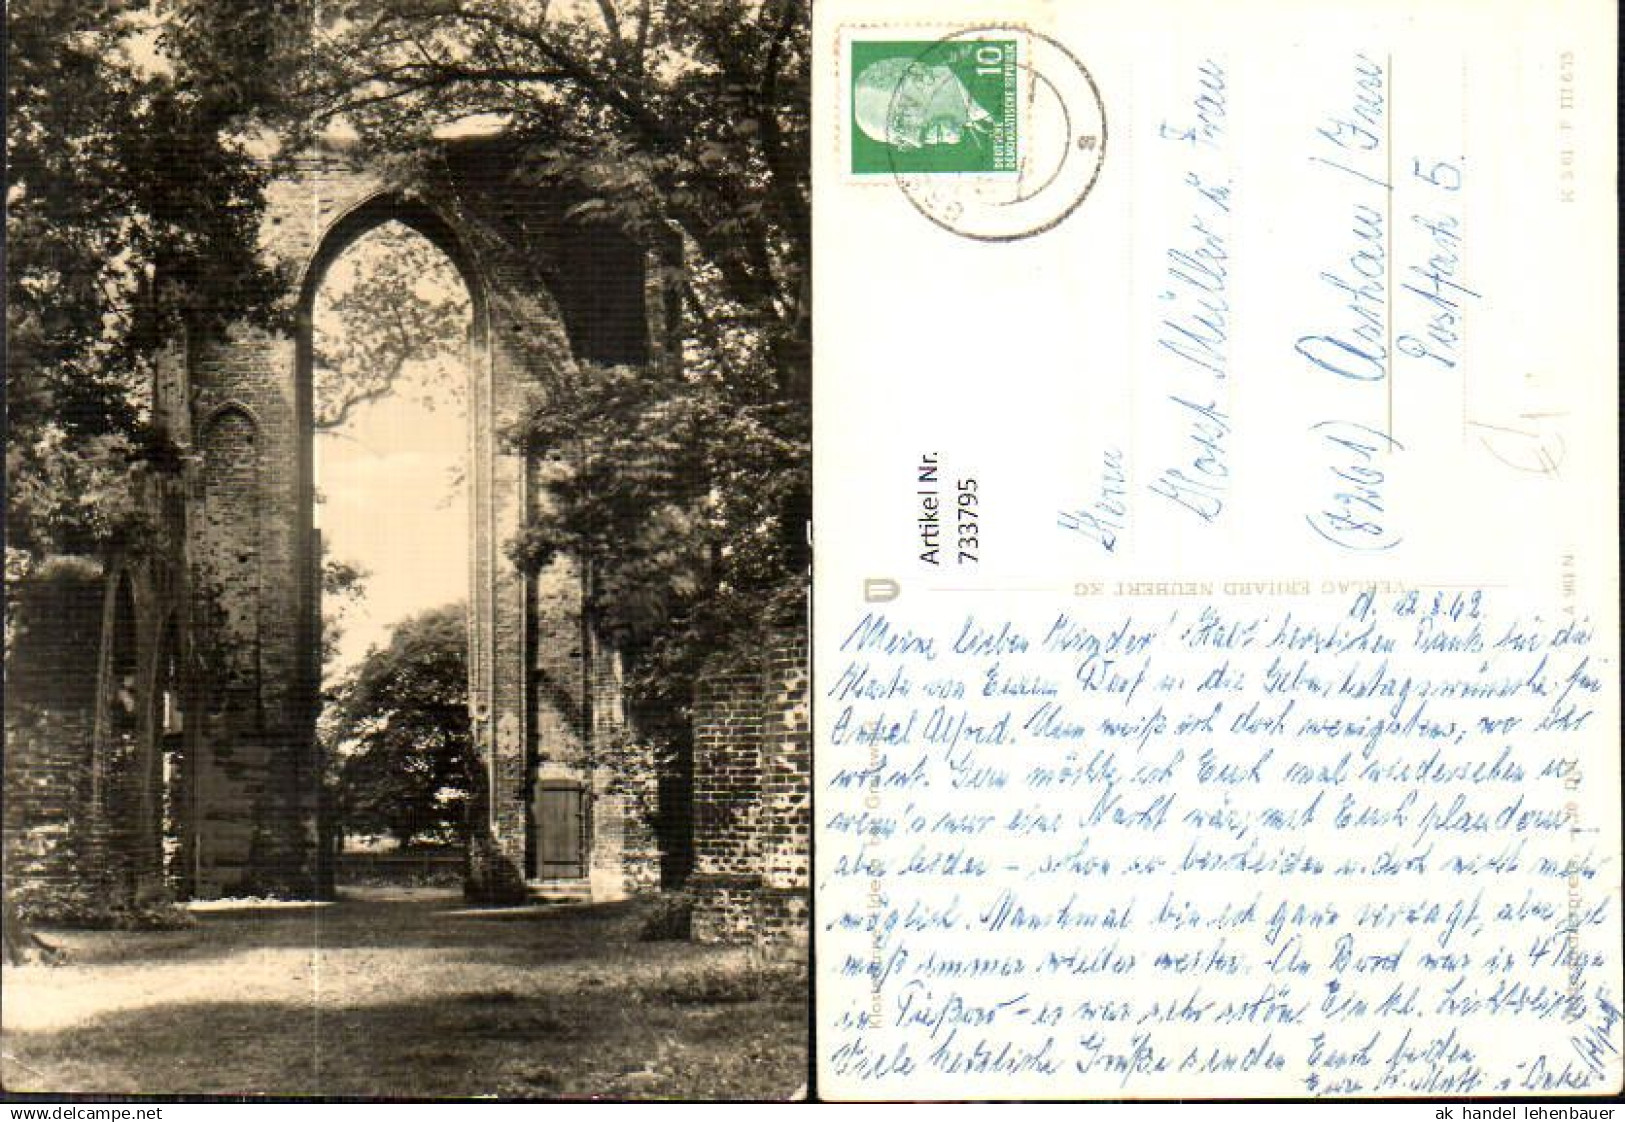 10
DEUTSCHE
DEMOKRATISCHE REPUBLIK
a
Artikel Nr.
733795
Herrn
Horst Müller u. Frau
(8261)
Postfach 5.
VERLAG ERHARD NEUBERT KG
K 3/61 F III 6/15
A 901 N
Klosterruine Eldena b. Greifswald
Meine lieben Kinder! Habt herzlichen Dank für die
Karte von Eurem Dorf u. die Geburtstagswünsche für
Onkel Alfred. Nun weiß ich doch wenigstens, wo ihr
wohnt. Gern möchte ich Euch mal wiedersehen u.
wenn's nur eine Nacht wär, mit Euch plaudern
aber leider - schon so bescheiden u. doch nicht mehr
möglich. Manchmal bin ich ganz verzagt, aber ich
muß immer wieder weiter. An Bord war ich 4 Tage
es war sehr schön.
Viele herzliche Grüße senden Euch beiden
Eure
ak handel lehenbauer